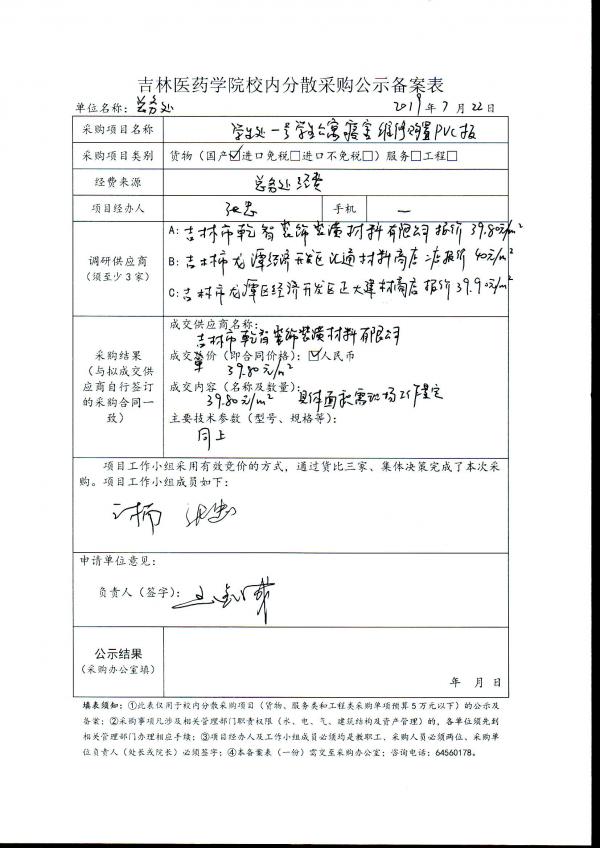 吉林医药学院校内分散采购公示备案表
单位名称：总务处 2019年7月22日
采购项目名称 学生处一号学生公寓寝室维修购置PVC板
采购项目类别 货物（国产☑进口免税□进口不免税□）服务□工程□
经费来源 总务处经费
项目经办人 张忠 手机 —
调研供应商
（须至少3家）
A：吉林市乾智装饰装潢材料有限公司 报价 39.80元/m²
B：吉林市龙潭经济开发区汇通材料商店 报价 40元/m²
C：吉林市龙潭区经济开发区正大建材商店 报价 39.90元/m²
采购结果
（与拟成交供
应商自行签订
的采购合同一
致）
成交供应商名称：
吉林市乾智装饰装潢材料有限公司
成交单价（即合同价格）：☑人民币
39.80元/m²
成交内容（名称及数量）：
39.80元/m² 具体面积需现场工作量定
主要技术参数（型号、规格等）：
同上
项目工作小组采用有效竞价的方式，通过货比三家、集体决策完成了本次采
购。项目工作小组成员如下：
张忠
申请单位意见：
负责人（签字）：
公示结果
（采购办公室填）
年 月 日
填表须知：①此表仅用于校内分散采购项目（货物、服务类和工程类采购单项预算5万元以下）的公示及
备案；②采购事项凡涉及相关管理部门职责权限（水、电、气、建筑结构及资产管理）的，各单位须先到
相关管理部门办理相应手续；③项目经办人及工作小组成员必须均是教职工、采购人员必须两位、采购单
位负责人（处长或院长）必须签字；④本备案表（一份）需交至采购办公室；咨询电话：64560178。